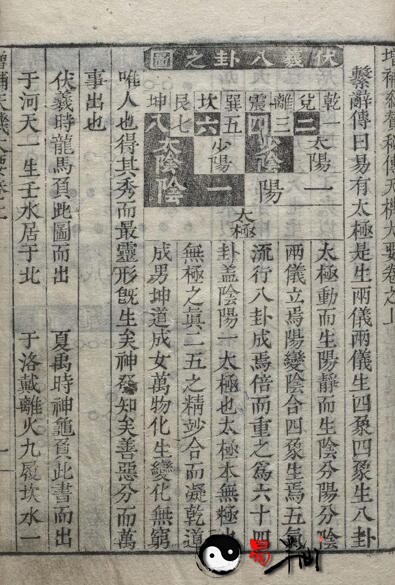 增補參贊秘傳天機大要卷之上
繫辭傳曰易有太極是生兩儀兩儀生四象四象生八卦
伏羲八卦之圖
乾兌離震巽坎艮坤
二三四五六七八
太陽 少陰 少陽 太陰
陽 陰
太極
太極動而生陽靜而生陰分陽分陰
兩儀立焉陽變陰合四象生焉五氣
流行八卦成焉倍而重之爲六十四
卦盖陰陽一太極也太極本無極也
無極之眞二五之精妙合而凝乾道
成男坤道成女萬物化生變化無窮
唯人也得其秀而最靈形旣生矣神發知矣善惡分而萬
事出也
伏羲時龍馬負此圖而出 夏禹時神龜負此書而出
于河天一生壬水居于北 于洛戴離火九履坎水一
增補天機大要卷之上 一